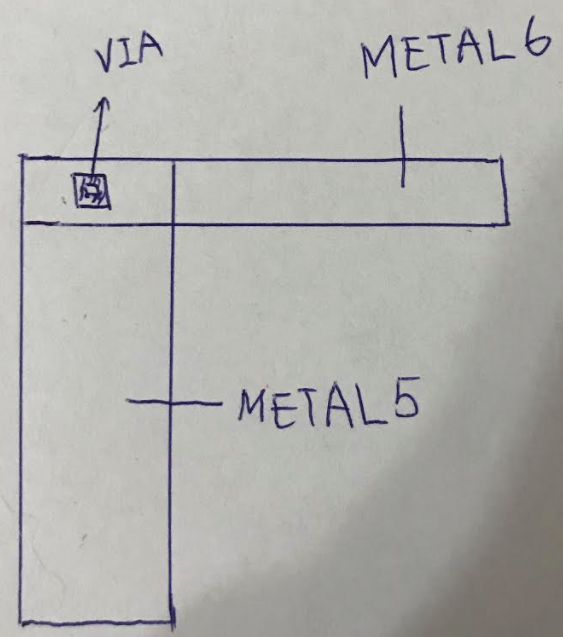 VIA
METAL6
METAL5